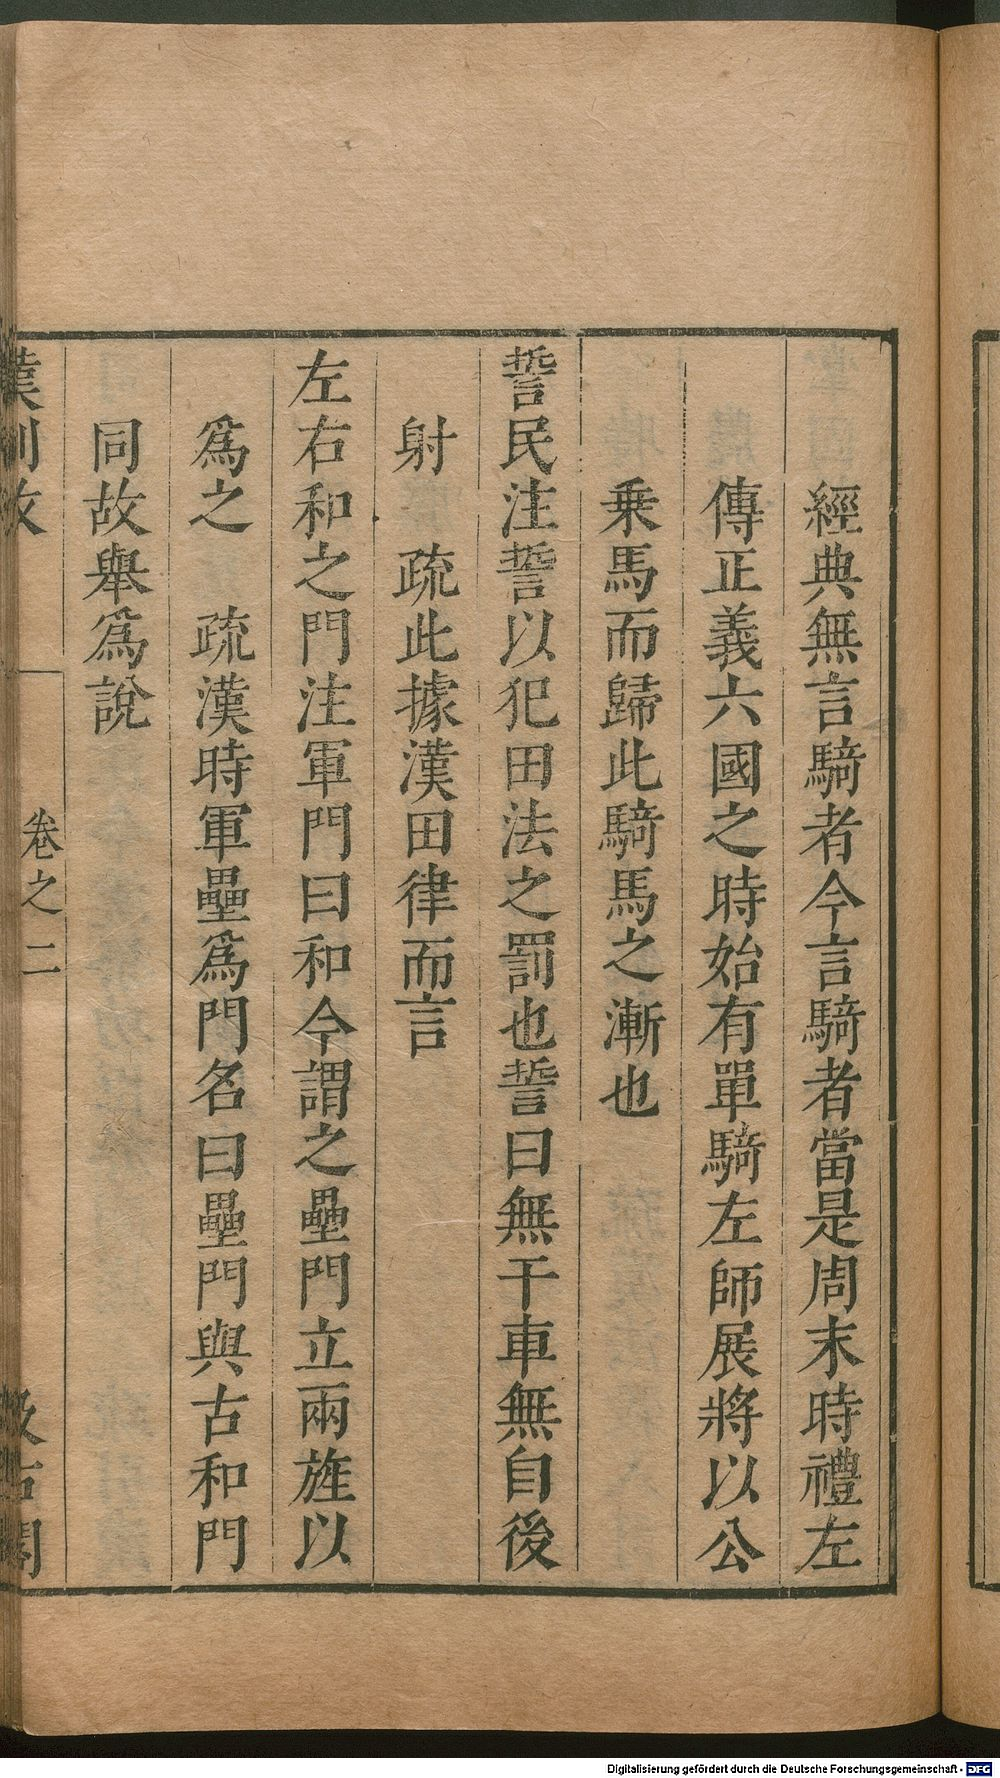 經典無言騎者今言騎者當是周末時禮左
傳正義六國之時始有單騎左師展將以公
乘馬而歸此騎馬之漸也
誓民注誓以犯田法之罰也誓曰無干車無自後
射　疏此據漢田律而言
左右和之門注軍門曰和今謂之壘門立兩旌以
爲之　疏漢時軍壘爲門名曰壘門與古和門
同故舉爲說
漢制攷　卷之二　汲古閣
Digitalisierung gefördert durch die Deutsche Forschungsgemeinschaft - DFG